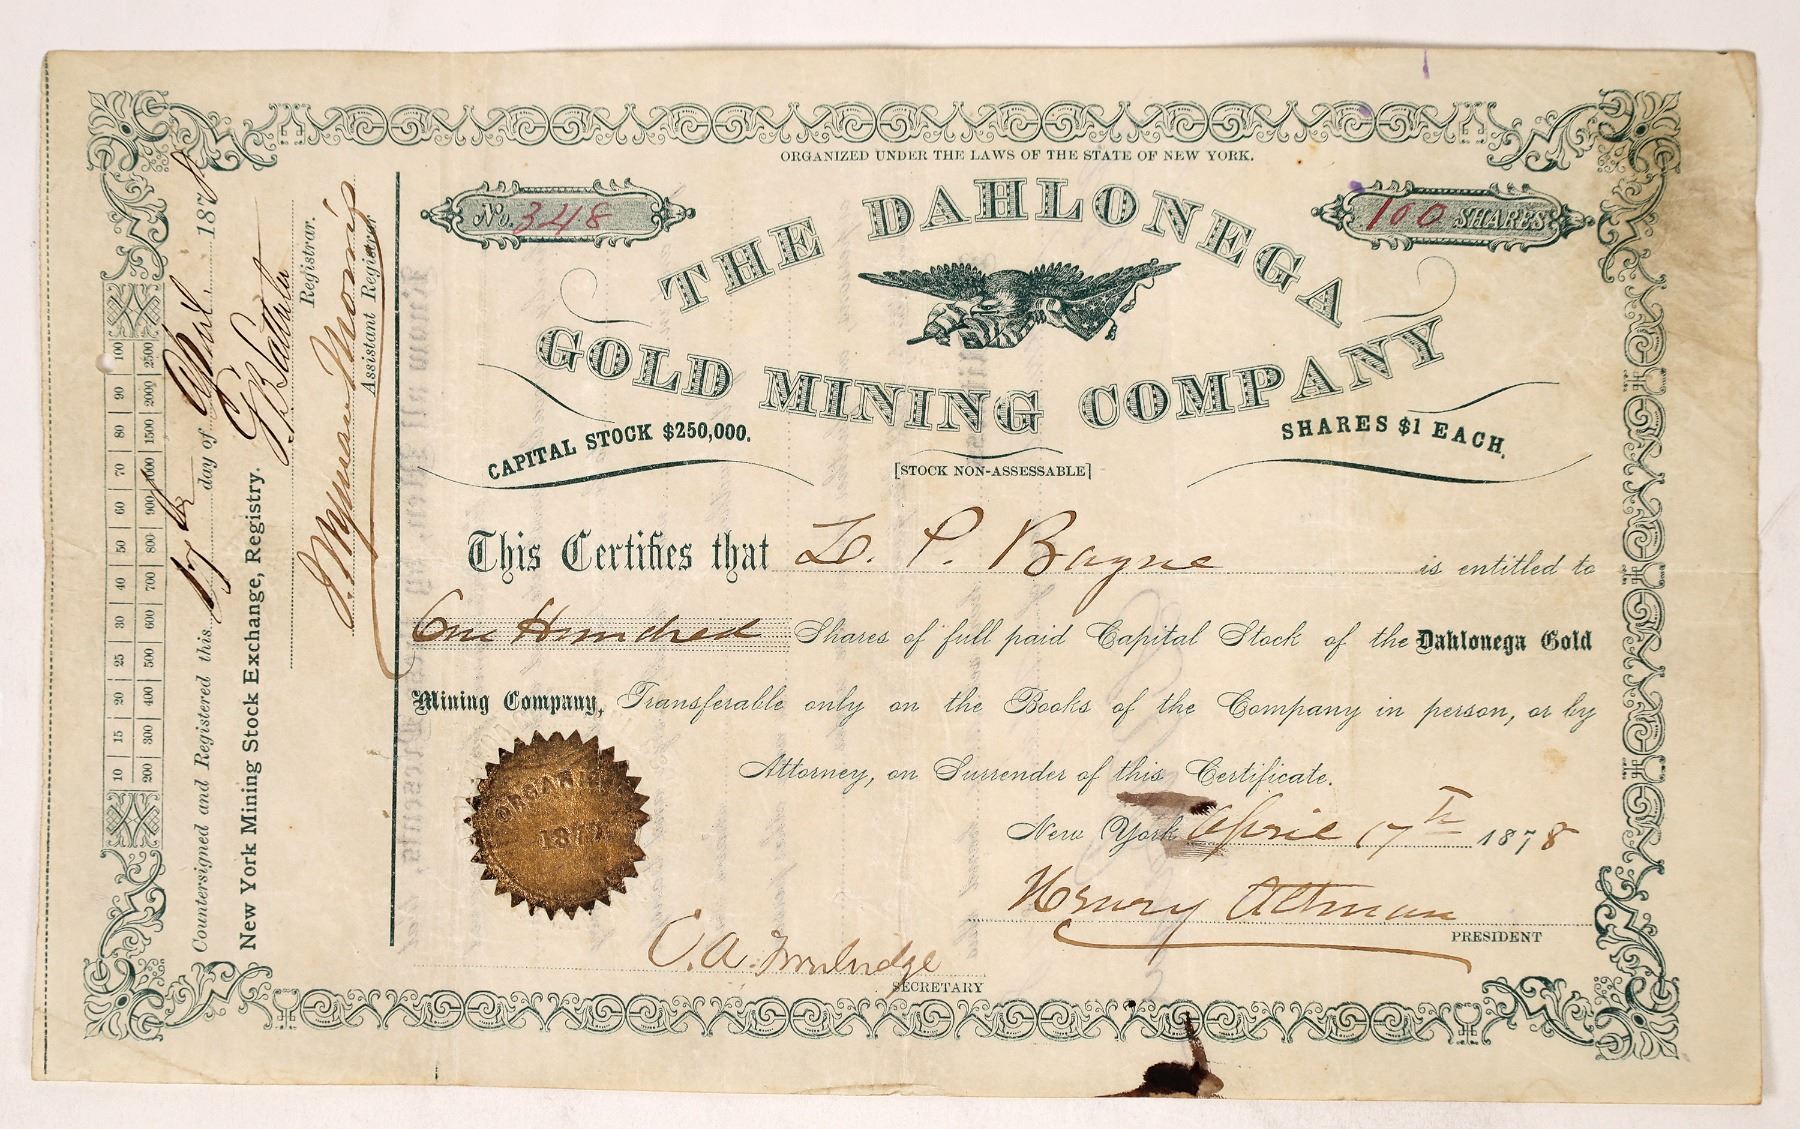 ORGANIZED UNDER THE LAWS OF THE STATE OF NEW YORK.
No. 348
100 SHARES
THE DAHLONEGA
GOLD MINING COMPANY
CAPITAL STOCK $250,000.
SHARES $1 EACH.
[STOCK NON-ASSESSABLE]
This Certifies that L. P. Bayne is entitled to
One Hundred Shares of full paid Capital Stock of the Dahlonega Gold
Mining Company, Transferable only on the Books of the Company in person, or by
Attorney, on Surrender of this Certificate.
New York April 17th 1878
Henry Altman
PRESIDENT
C. A.
SECRETARY
ORGANIZED
1877
10 15 20 25 30 40 50 60 70 80 90 100
200 300 400 500 600 700 800 900 1000 1500 2000 2500
Countersigned and Registered this 17th day of April 1878
New York Mining Stock Exchange, Registry.
Registrar.
Assistant Registrar